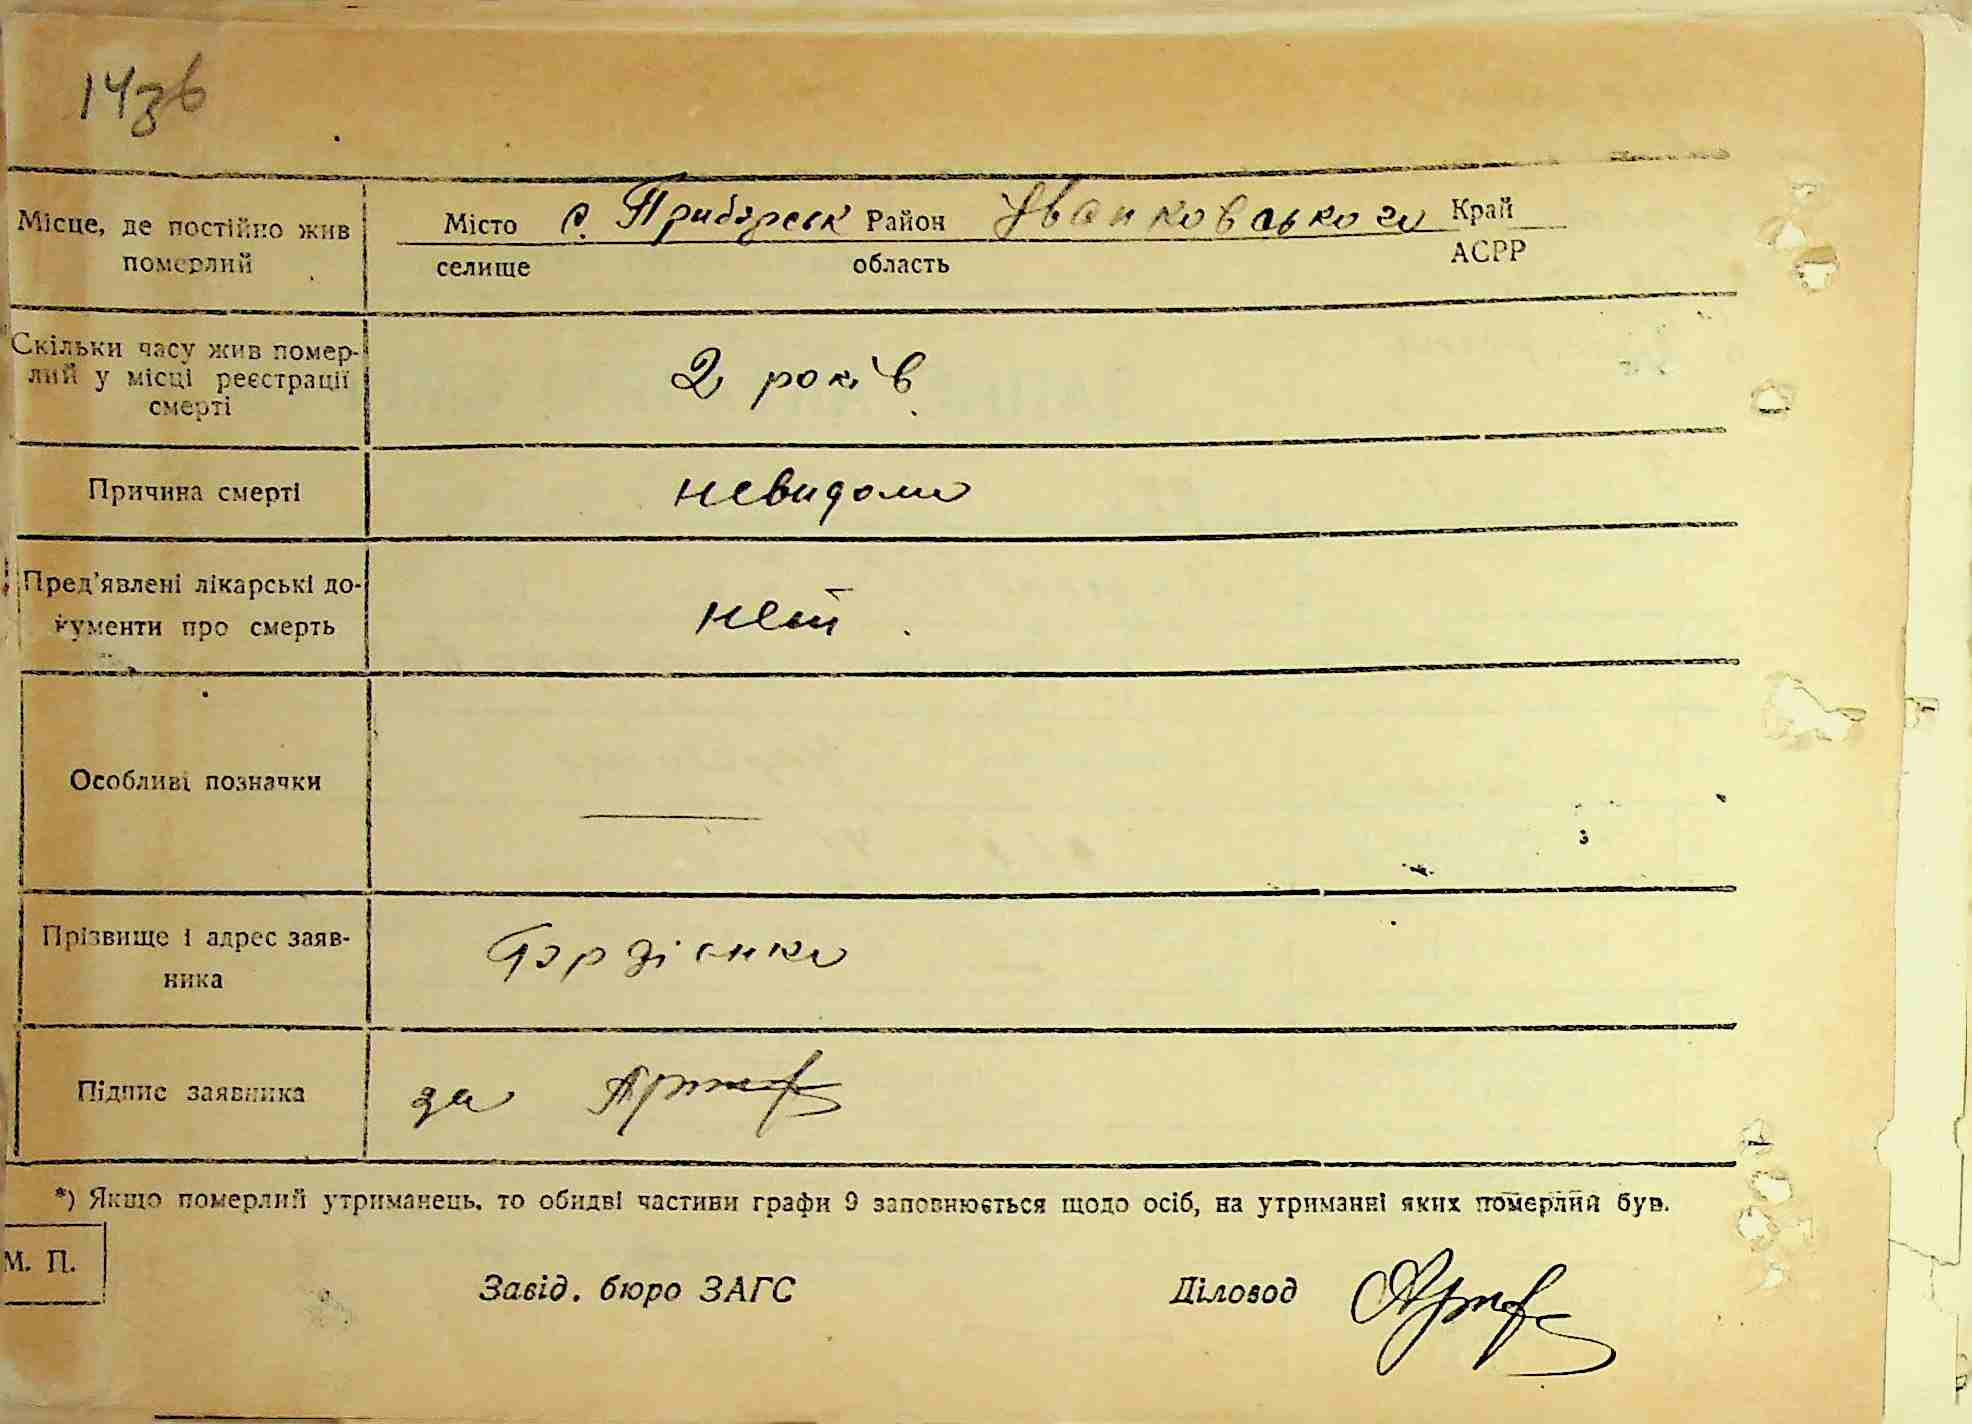 14зв
Місце, де постійно жив померлий
Місто с. Прибірськ Район Іванковського Край
селище область АСРР
Скільки часу жив помер-
лий у місці реєстрації
смерті
2 років
Причина смерті
невидомо
Пред'явлені лікарські до-
кументи про смерть
нет
Особливі позначки
Прізвище і адрес заяв-
ника
Гордієнко
Підпис заявника
за
*) Якщо померлий утриманець, то обидві частини графи 9 заповнюється щодо осіб, на утриманні яких померлий був.
М. П.
Завід. бюро ЗАГС Діловод